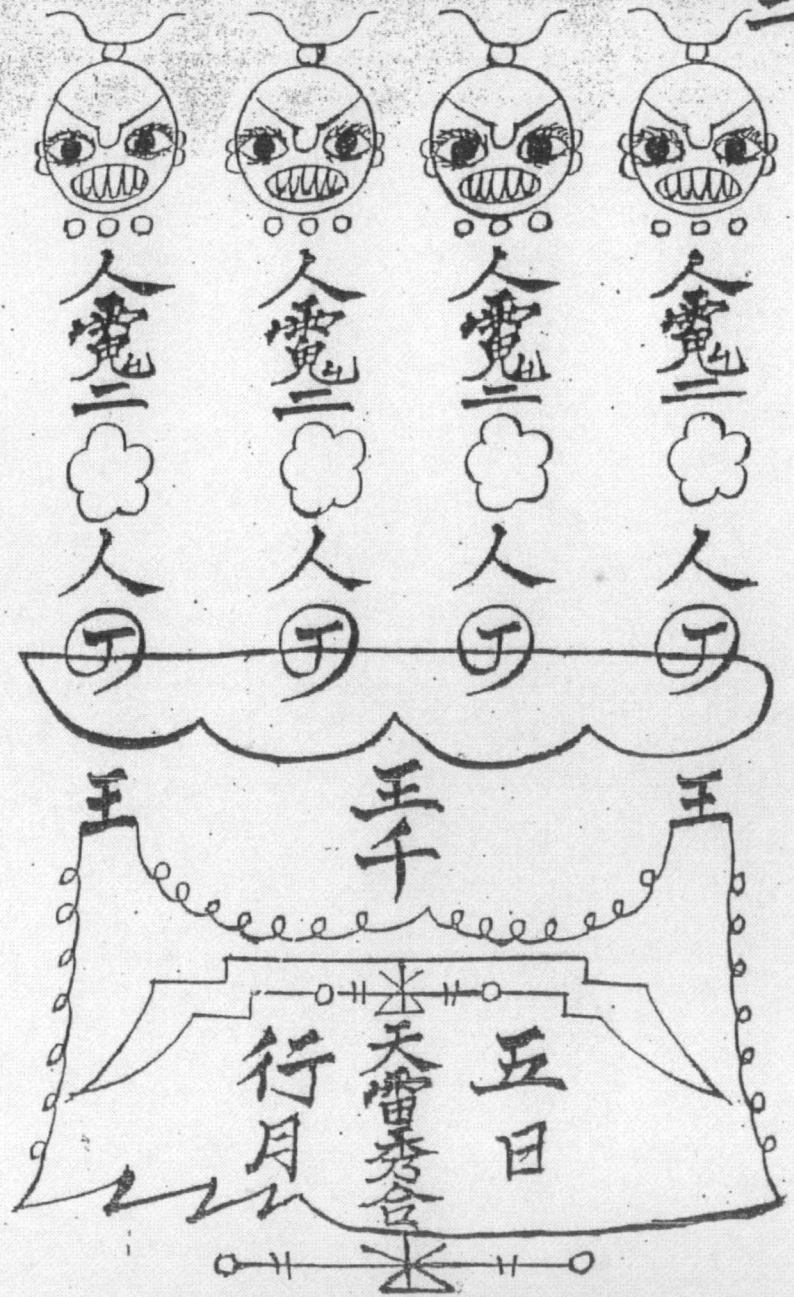 二
人
二
人
丁
人
二
人
丁
人
二
人
丁
人
二
人
丁
王
王千
王
五日
天雷秀合
行月